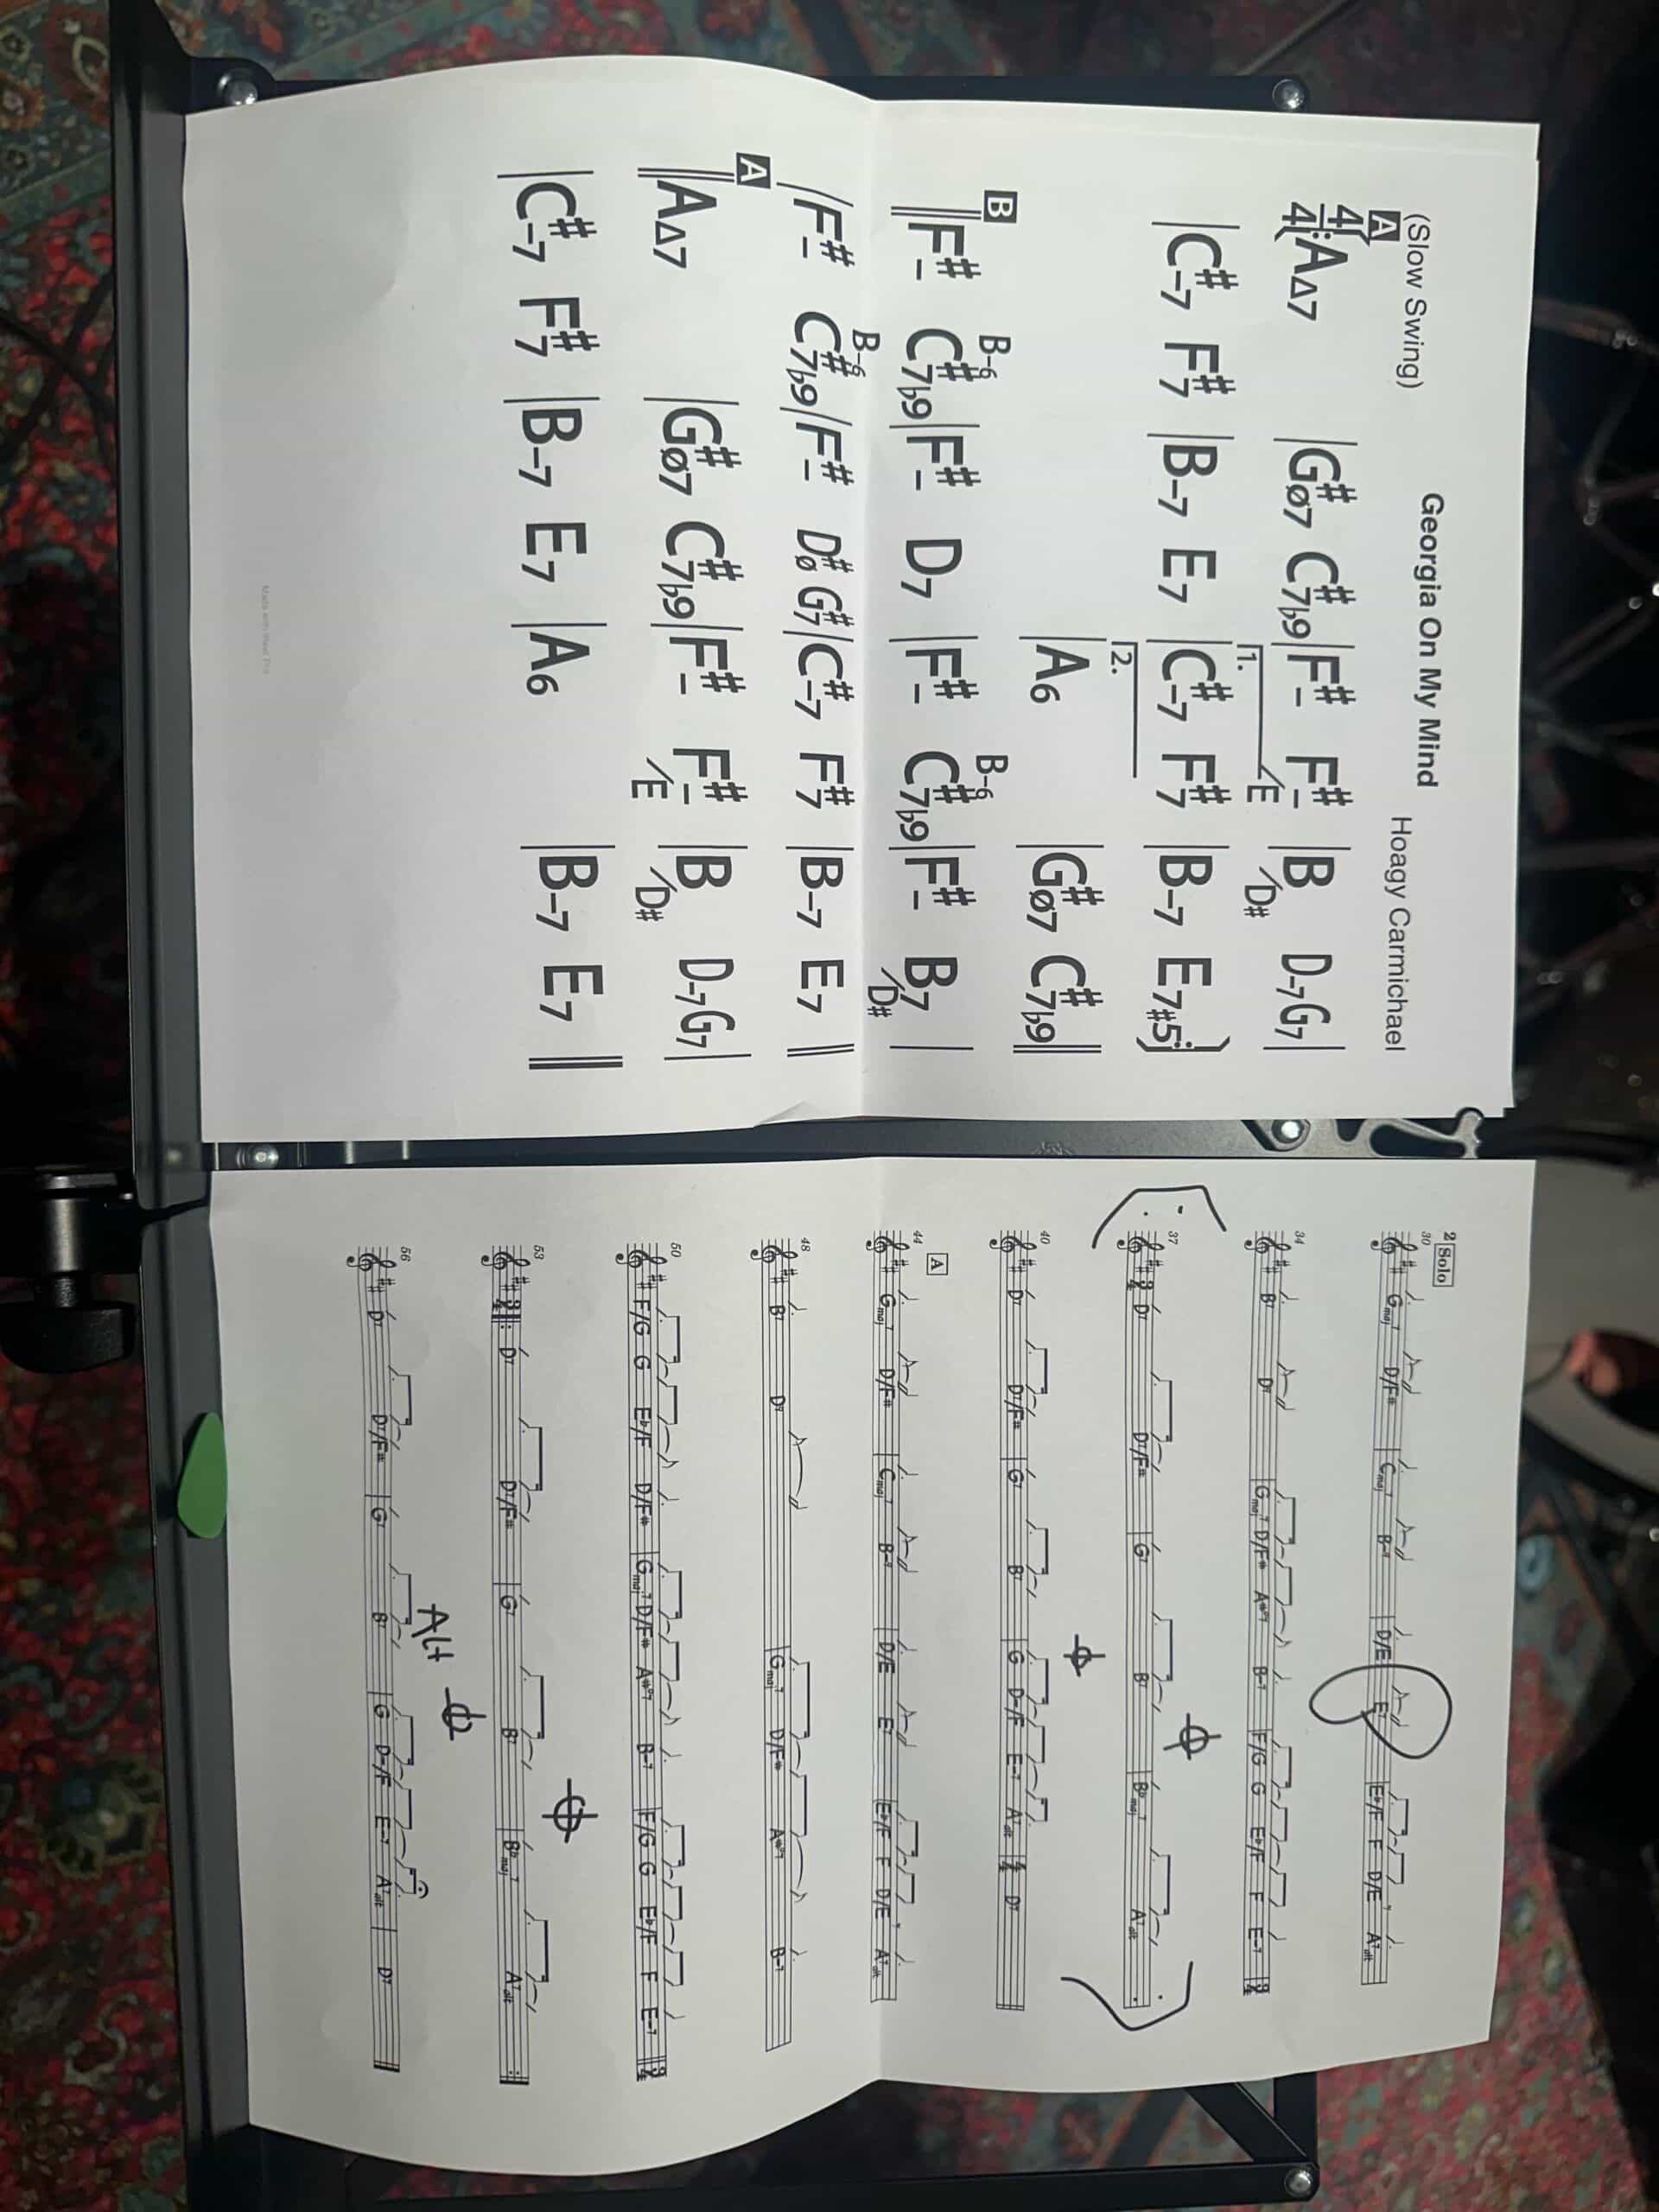 Georgia On My Mind
(Slow Swing) Hoagy Carmichael
A
4/4 A△7 | G#ø7 C#7♭9 | F#- F#-/E | B/D# D-7 G7 |
1.
| C#-7 F#7 | B-7 E7 | C#-7 F#7 | B-7 E7#5 :
2.
| A6 | G#ø7 C#7♭9 ||
B
B-6 B-6
|| F#- C#7♭9 | F#- D7 | F#- C#7♭9 | F#- B7/D# |
B-6
| F#- C#7♭9 | F#- D#ø G#7 | C#-7 F#7 | B-7 E7 ||
A
|| A△7 | G#ø7 C#7♭9 | F#- F#-/E | B/D# D-7 G7 |
| C#-7 F#7 | B-7 E7 | A6 | B-7 E7 ||
2 Solo
30
Gmaj7 D/F# | Cmaj7 | D/E E7 | E♭/F F D/E A7alt
34
B7 D7 | Gmaj7 D/F# A#°7 B-7 | F/G G E♭/F F E-7
37
D7 D7/F# | G7 B7 | B♭maj7 A7alt
40
D7 D7/F# | G7 B7 | G D-/F E-7 A7alt | D7
A
44
Gmaj7 D/F# | Cmaj7 | D/E E7 | E♭/F F D/E A7alt
48
B7 | Gmaj7 D/F# A#°7 B-7
50
F/G G E♭/F D/F# | Gmaj7 D/F# A#°7 B-7 | F/G G E♭/F F E-7
53
D7 D7/F# | G7 B7 | B♭maj7 A7alt
Alt
56
D7 D7/F# | G7 B7 | G D-/F E-7 A7alt | D7